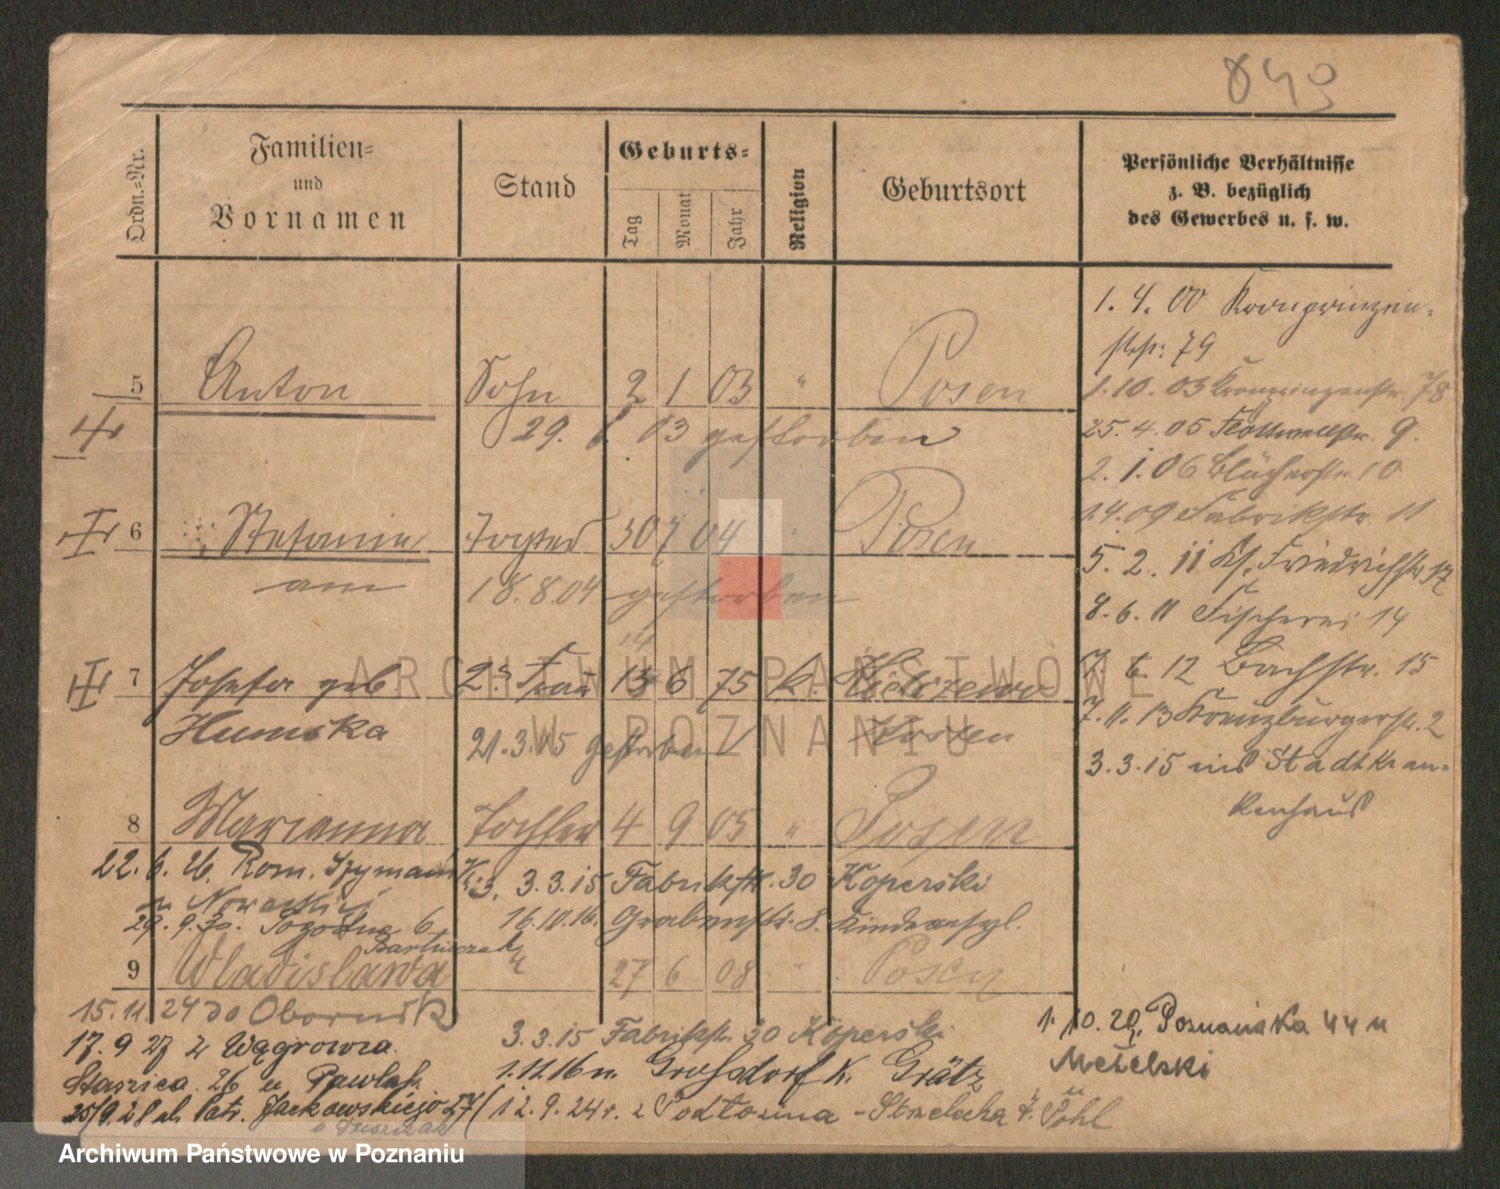 849
Ordn.-Nr.
Familien-
und
Vornamen
Stand
Geburts-
Tag
Monat
Jahr
Religion
Geburtsort
Persönliche Verhältnisse
z. B. bezüglich
des Gewerbes u. s. w.
5 Anton Sohn 2 1 03 " Posen
29. 1. 03 gestorben
6 Stefanie Tochter 30 7 04 Posen
am 18.8.04 gestorben
7 Josefa geb 2te Frau 13 6 75 k.
14
Humska 21.3.15 gestorben Posen
8 Marianna Tochter 4 9 05 " Posen
22. 6. 26. Rom. Szymański 3. 3.3.15 Fabrikstr. 30 Koperski
29. 9. 30. 6 16.10.16. Grabenstr. 8. Kinderasyl.
Bartkowiak
9 Wladislawa " 27 6 08 " Posen
15.11 24 do Obornik
3.3.15 Fabrikstr. 30 Koperski
17. 9 27 z Wągrowca
1.11.16 n. Grossdorf K. Grätz
Staszica 26 u Pawlak
25/9.28 ul. Patr. Jackowskiego 27
12.9.24 r. z Podłozina - Strzelecka 4. Pohl
1. 4. 00 Kronprinzen-
str: 79
1.10.03 Kronprinzenstr. 78
25.4.05 Flottwellstr. 9.
2.1.06 Blücherstr 10
1.4.09 Fabrikstr. 11
5. 2. 11 Kl. Friedrichstr 17
8. 6. 11 Fischerei 14
7. 6. 12 Bachstr. 15
7.11.13 Kreuzburgerstr. 2
3.3.15 ins Stadtkran-
kenhaus
1. 10. 29. Poznańska 44 u
Metelski
ARCHIWUM PAŃSTWOWE
W POZNANIU
Archiwum Państwowe w Poznaniu